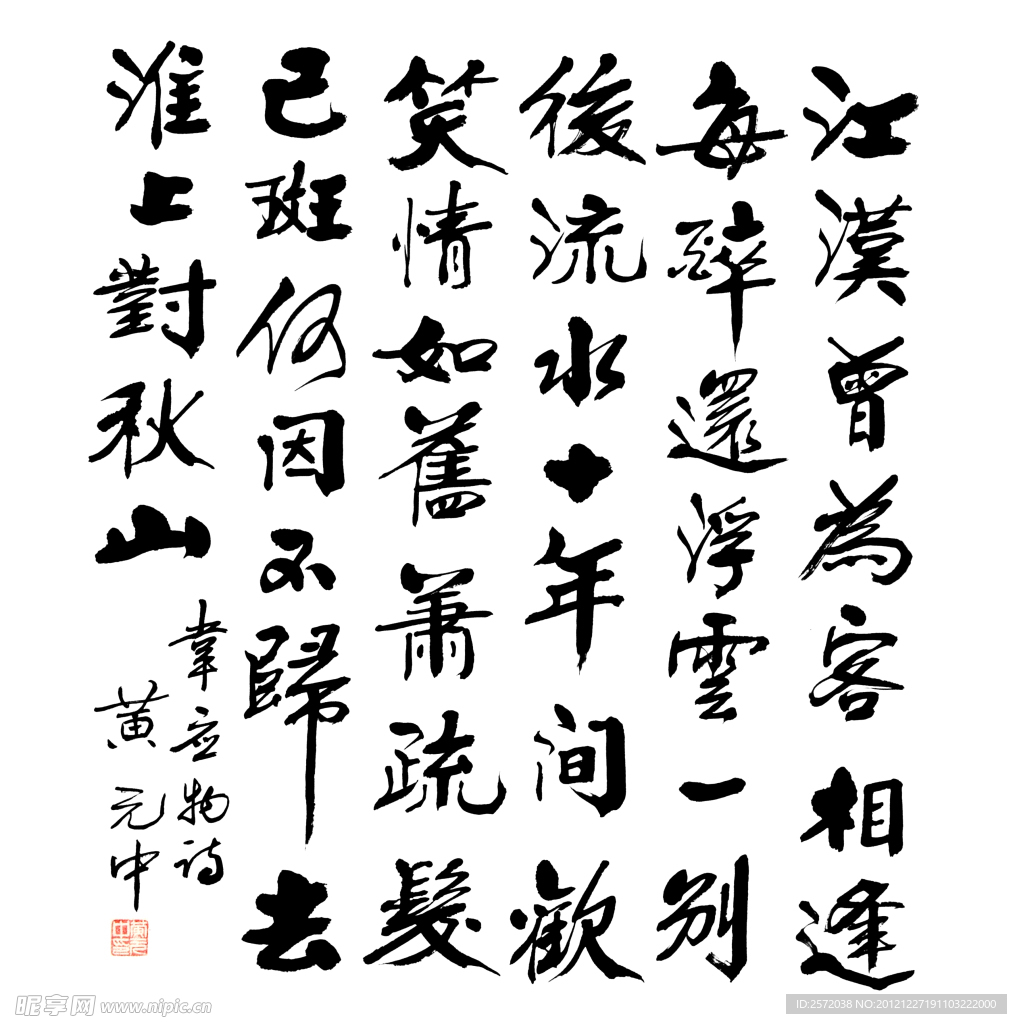 江漢曾為客相逢
每醉還浮雲一别
後流水十年间歡
笑情如舊蕭疏髮
已斑何因不歸去
淮上對秋山
韋应物诗
黄元中
昵享网 www.nipic.cn
ID:2572038 NO:20121227191103222000